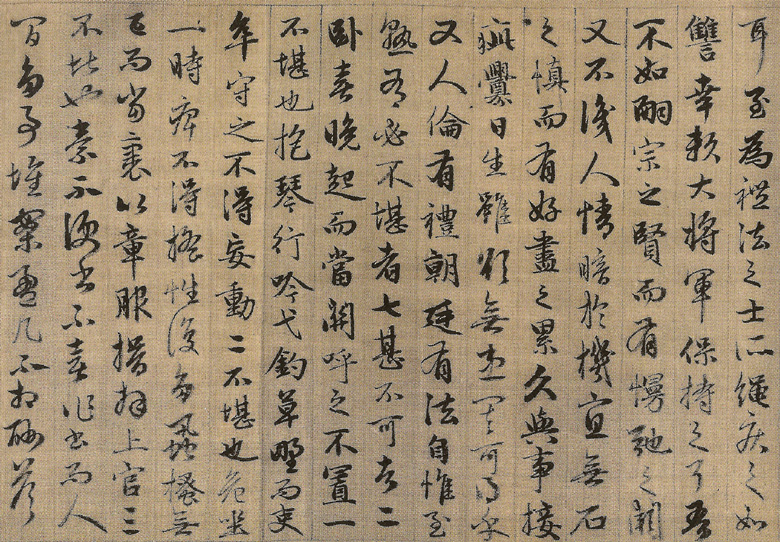 耳至為禮法之士所繩疾之如
讐幸賴大將軍保持之耳吾
不如嗣宗之賢而有慢弛之闕
又不識人情暗於機宜無石
之慎而有好盡之累久與事接
疵釁日生雖欲無患其可得乎
又人倫有禮朝廷有法自惟至
熟有必不堪者七甚不可者二
臥喜晚起而當關呼之不置一
不堪也抱琴行吟弋釣草野而吏
卒守之不得妄動二不堪也危坐
一時痺不得搖性復多蝨搔無
已而當裹以章服揖拜上官三
不堪也素不便書不喜作書而人
間多事堆案盈几不相酬答